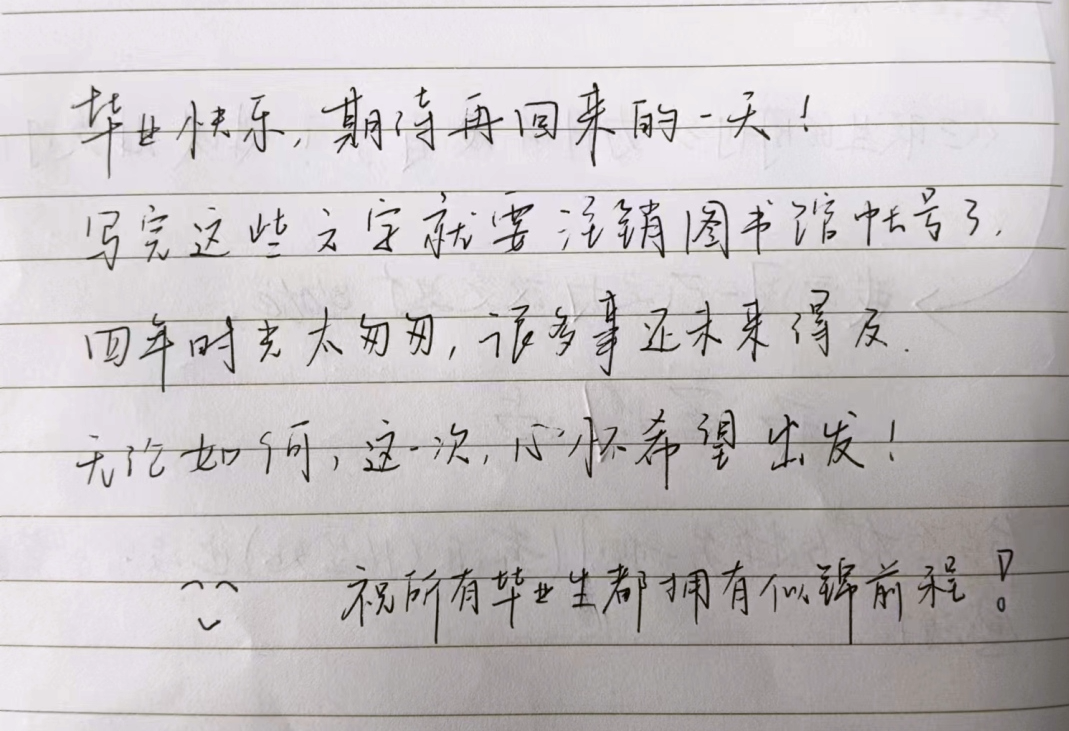 毕业快乐，期待再回来的一天！
写完这些文字就要注销图书馆帐号了.
四年时光太匆匆，很多事还未来得及.
无论如何，这一次，心怀希望出发！
祝所有毕业生都拥有似锦前程！